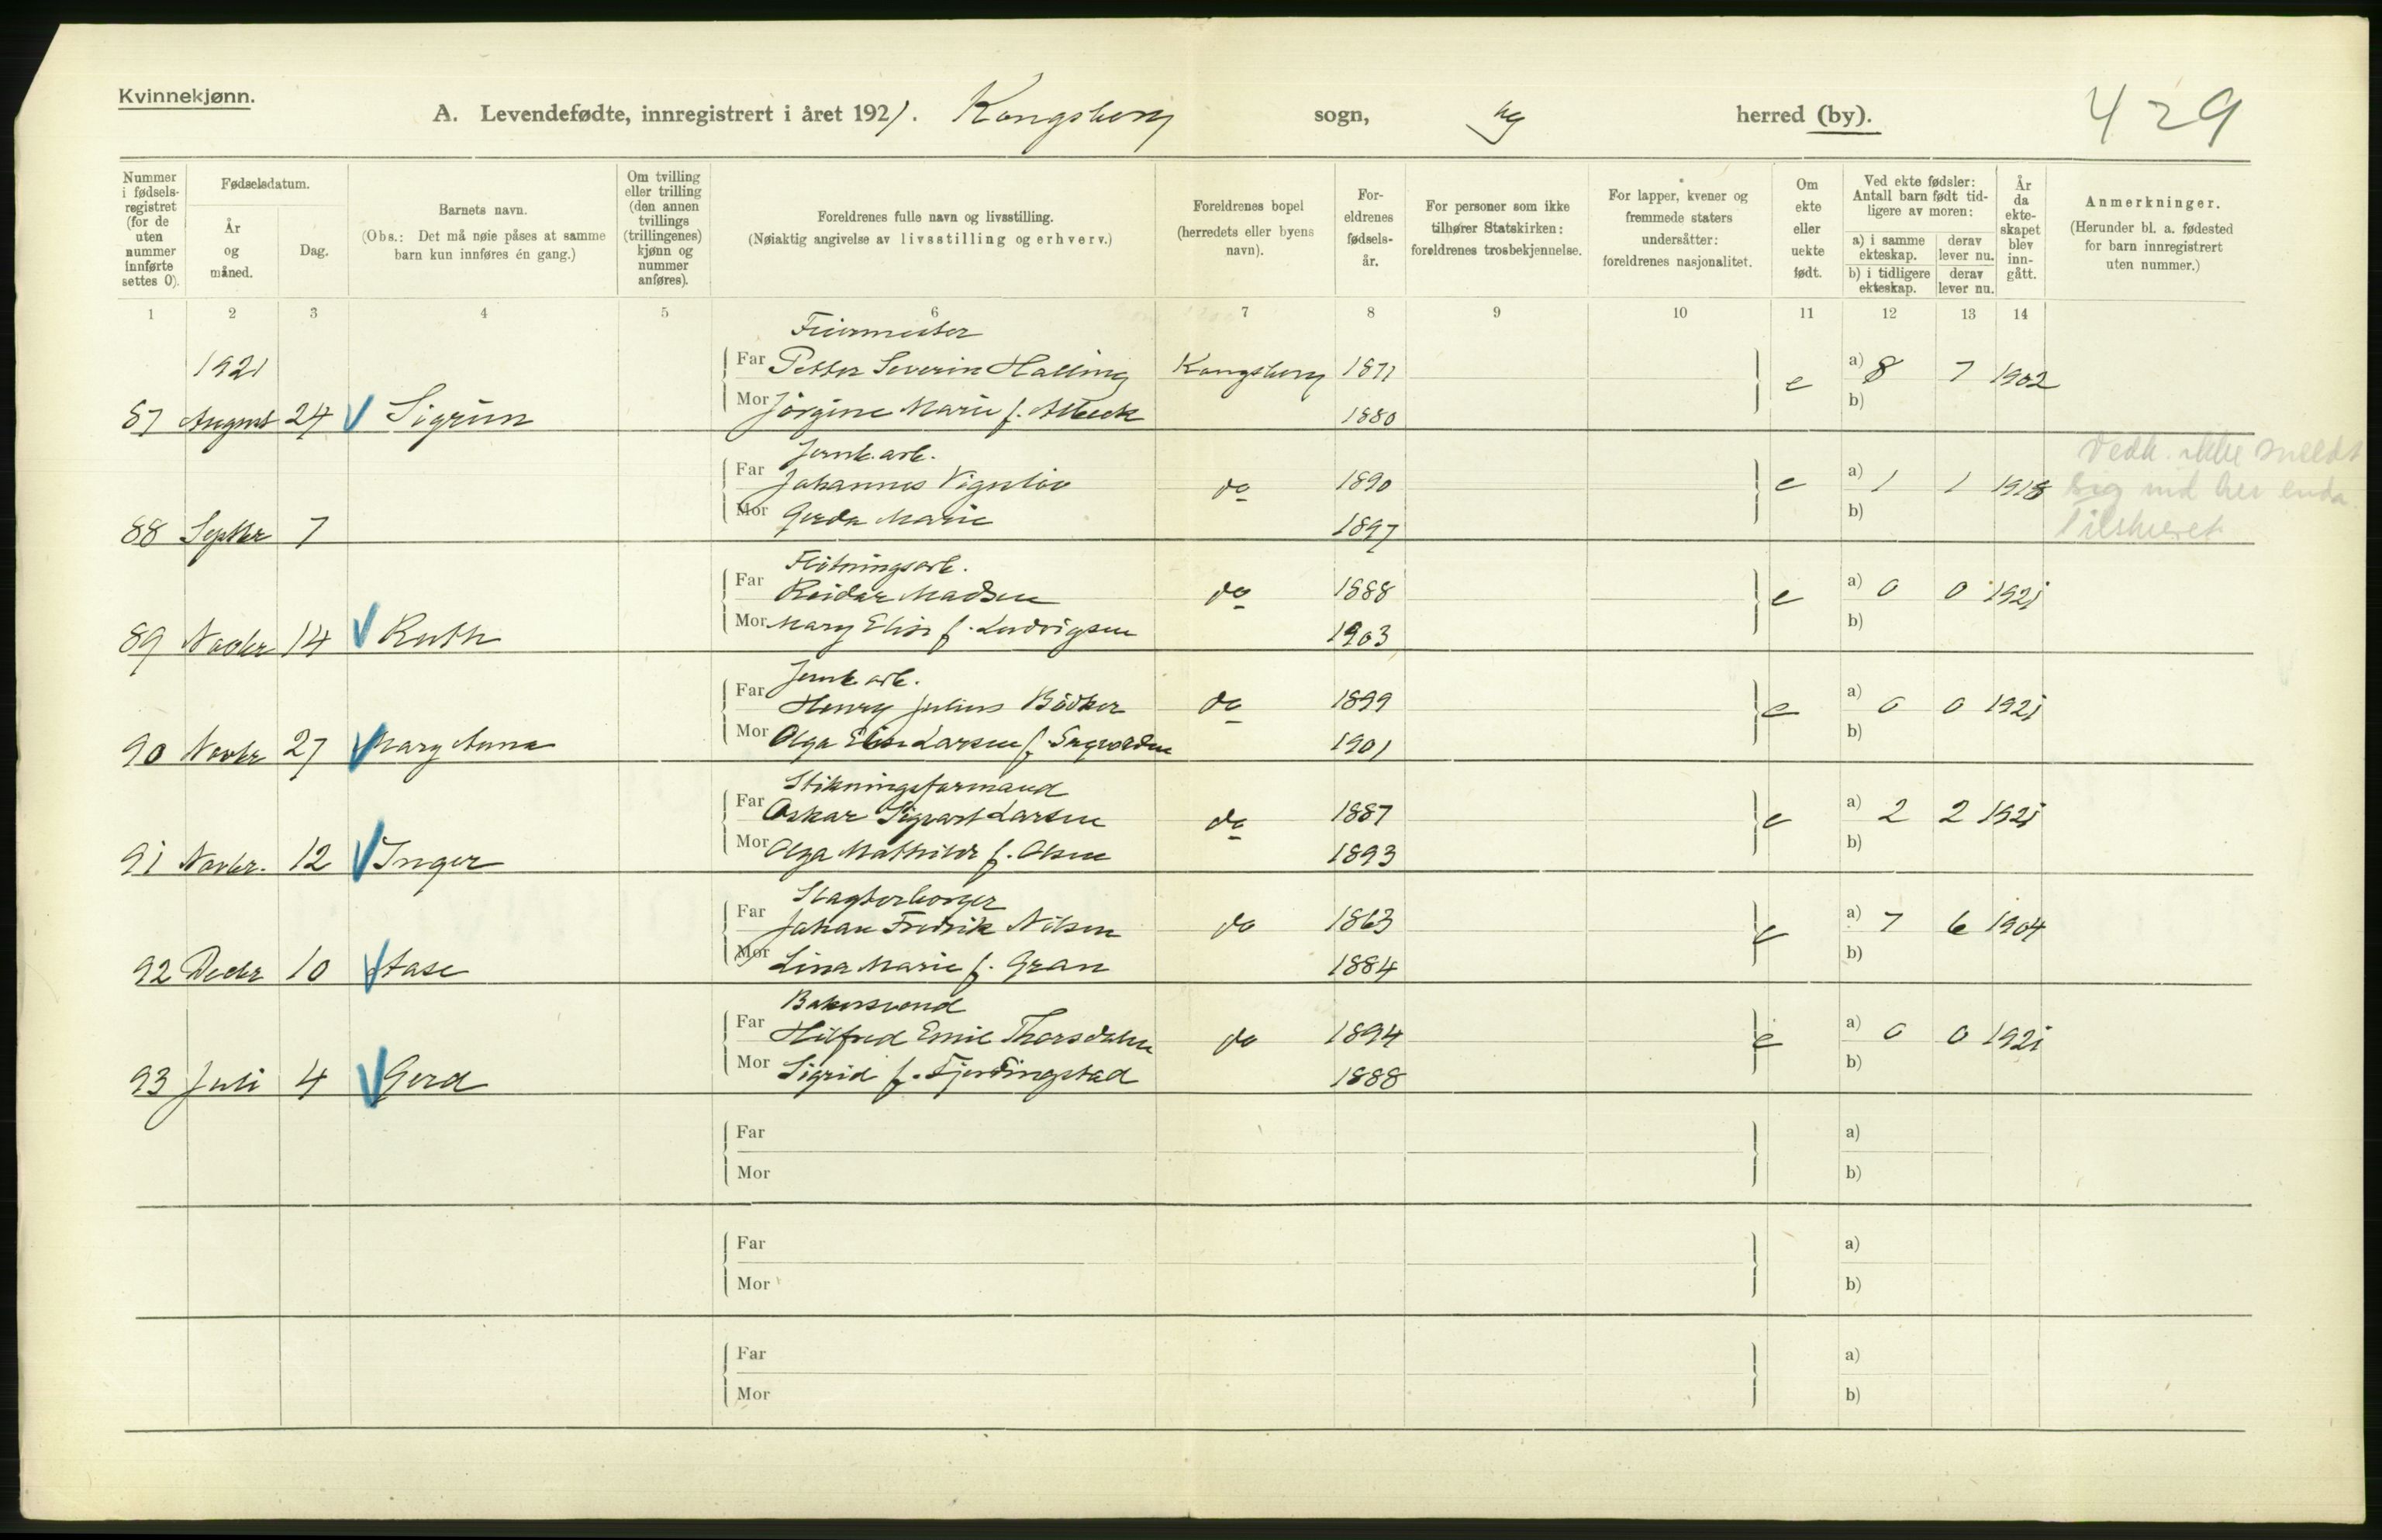 Kvinnekjønn.
A. Levendefødte, innregistrert i året 1921. Kongsberg sogn, herred (by).
429
Nummer i fødselsregistret (for de uten nummer innførte settes 0).
Fødselsdatum.
År og måned.
Dag.
Barnets navn.
(Obs.: Det må nøie påses at samme barn kun innføres én gang.)
Om tvilling eller trilling (den annen tvillings (trillingenes) kjønn og nummer anføres).
Foreldrenes fulle navn og livsstilling.
(Nøiaktig angivelse av livsstilling og erhverv.)
Foreldrenes bopel (herredets eller byens navn).
Foreldrenes fødselsår.
For personer som ikke tilhører Statskirken: foreldrenes trosbekjennelse.
For lapper, kvener og fremmede staters undersåtter: foreldrenes nasjonalitet.
Om ekte eller uekte født.
Ved ekte fødsler: Antall barn født tidligere av moren:
a) i samme ekteskap. derav lever nu.
b) i tidligere ekteskap. derav lever nu.
År da ekteskapet blev inngått.
Anmerkninger.
(Herunder bl. a. fødested for barn innregistrert uten nummer.)
1 2 3 4 5 6 7 8 9 10 11 12 13 14
1921
Feiermester
Far Petter Severin Halling Kongsberg 1871 e a) 8 7 1902
87 August 24 Sigrun
Mor Jörgine Marie f. 1880 b)
Jernb.arb.
Far Johannes do 1890 e a) 1 1 1918
88 Septbr 7
Mor Gerda Marie 1897 b)
Vedk. ikke meldt
sig ind her enda.
Tilskrevet
Flötningsarb.
Far Reidar Madsen do 1888 e a) 0 0 1921
89 Novbr 14 Ruth
Mor Mary Elise f. Ludvigsen 1903 b)
Jernb.arb.
Far Henry Julius Bödker do 1899 e a) 0 0 1921
90 Novbr 27 Mary Anna
Mor Olga Elise Larsen f. 1901 b)
Stikningsformand
Far Oskar Sigvart Larsen do 1887 e a) 2 2 1921
91 Novbr. 12 Inger
Mor Olga Mathilde f. Olsen 1893 b)
Slagterborger
Far Johan Fredrik Nilsen do 1863 e a) 7 6 1904
92 Decbr 10 Aase
Mor Lina Marie f. Gran 1884 b)
Bakersvend
Far Hilfred Emil Thorsdalen do 1894 e a) 0 0 1921
93 Juli 4 Gerd
Mor Sigrid f. Fjerdingstad 1888 b)
Far a)
Mor b)
Far a)
Mor b)
Far a)
Mor b)